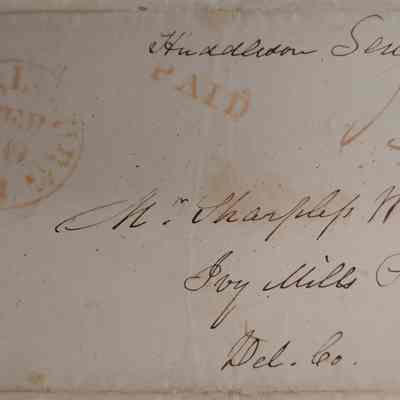 Huddleson Sen
PAID
Mr. Sharpless W
Ivy Mills
Del. Co.